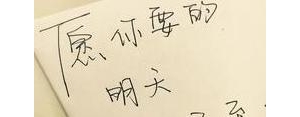 愿你要的
明天